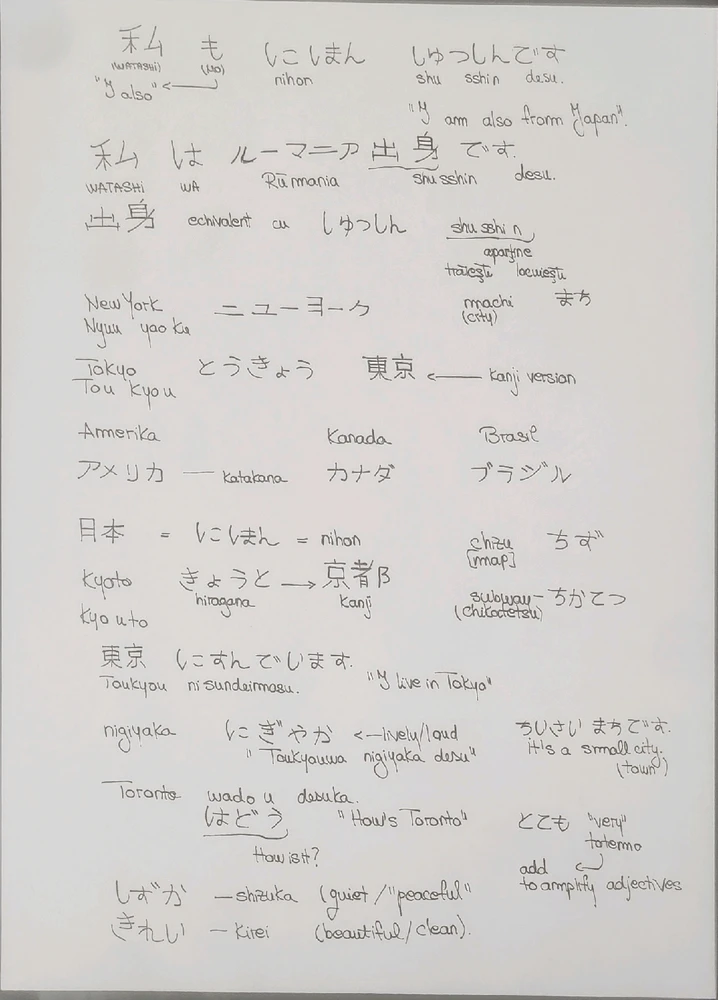 私 も にほん しゅっしんです
(WATASHI) (MO) nihon shu sshin desu.
"I also"
"I am also from Japan".
私 は ルーマニア 出身 です.
WATASHI WA Rūmania shusshin desu.
出身 echivalent cu しゅっしん shusshin
aparține
trăiești locuiești
New York ニューヨーク machi まち
Nyuu yao ku (city)
Tokyo とうきょう 東京 ← kanji version
Tou kyou
Amerika Kanada Brasil
アメリカ — katakana カナダ ブラジル
日本 = にほん = nihon chizu ちず
[map]
Kyoto きょうと → 京都
hiragana kanji
Kyo uto subway - ちかてつ
(chikatetsu)
東京 にすんでいます.
Toukyou ni sundeimasu. "I live in Tokyo"
nigiyaka にぎやか ← lively/loud ちいさい まちです.
"Toukyouwa nigiyaka desu" it's a small city.
(town)
Toronto wado u desuka.
はどう "How's Toronto" とても "very"
totemo
How is it?
add
to amplify adjectives
しずか — shizuka (quiet/"peaceful"
きれい — Kirei (beautiful/clean).